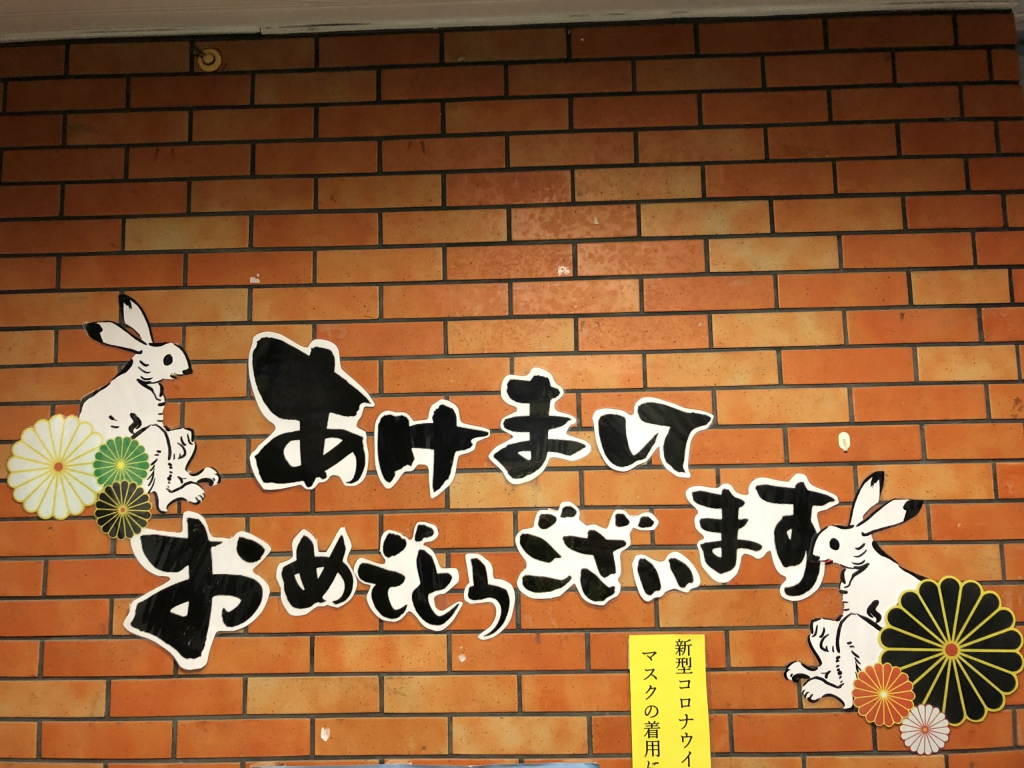 あけまして
おめでとうございます
新型コロナウイ
マスクの着用に